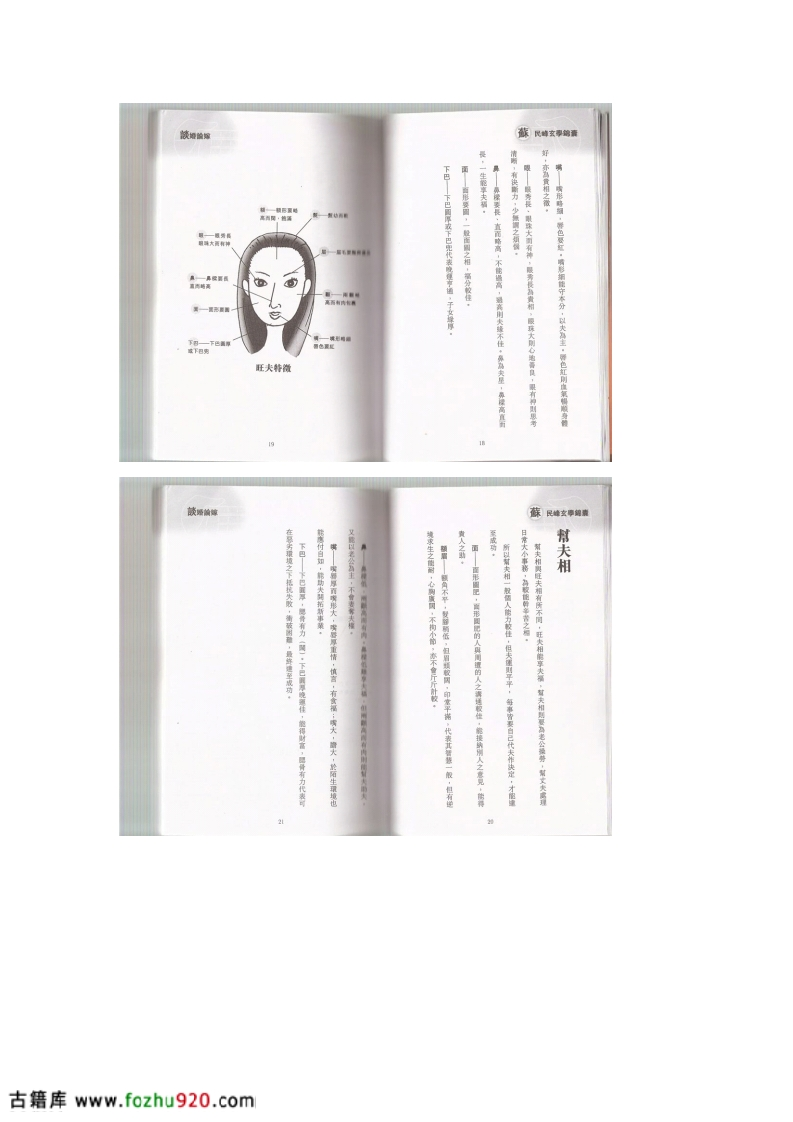 蘇民峰玄學錦囊
嘴——嘴形略細，唇色要紅。嘴形細能守本分，以夫為主。唇色紅則血氣暢順身體
好，亦為貴相之徵。
眼——眼秀長，眼珠大而有神，眼秀長為貴相，眼珠大則心地善良，眼有神則思考
清晰，有決斷力，少無謂之煩惱。
鼻——鼻樑要長，直而略高，不能過高，過高則夫緣不佳。鼻為夫星，鼻樑高直而
長，一生能享夫福。
面——面形要圓，一般面圓之相，福分較佳。
下巴——下巴圓厚或下巴兜代表晚運亨通，子女緣厚。
18
談婚論嫁
額——額形要略
高而闊、飽滿
眼——眼秀長
眼珠大而有神
鼻——鼻樑要長
直而略高
面——面形要圓
下巴——下巴圓厚
或下巴兜
嘴——嘴形略細
唇色要紅
旺夫特徵
19
蘇民峰玄學錦囊
幫夫相
幫夫相與旺夫相有所不同，旺夫相能享夫福，幫夫相則要為老公操勞，幫丈夫處理
日常大小事務，為較能幹辛苦之相。
所以幫夫相一般個人能力較佳，但夫運則平平，每事皆要自己代夫作決定，才能達
至成功。
面——面形圓肥，面形圓肥的人與周遭的人之溝通較佳，能接納別人之意見，能得
貴人之助。
額眉——額角不平，髮腳稍低，但眉頭較闊，印堂平滿，代表其智慧一般，但有逆
境求生之能耐，心胸廣闊，不拘小節，亦不會斤斤計較。
20
談婚論嫁
又能以老公為主，不會妻奪夫權。
嘴——嘴唇厚而嘴形大，嘴唇厚重情，慎言，有食福；嘴大，膽大，於陌生環境也
能應付自如，能助夫開拓新事業。
下巴——下巴圓厚，腮骨有力（闊）。下巴圓厚晚運佳，能得財富，腮骨有力代表可
在惡劣環境之下抵抗失敗，衝破困難，最終達至成功。
21
古籍库 www.fozhu920.com